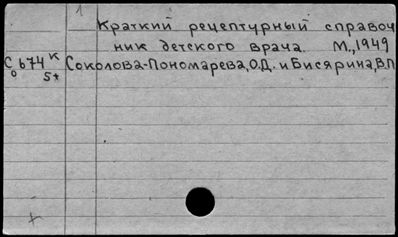 1
Краткий рецептурный справоч
ник детского врача. М.,1949
С 674 к Соколова-Пономарева,О.Д. и Бисярина,В.П
о 5*